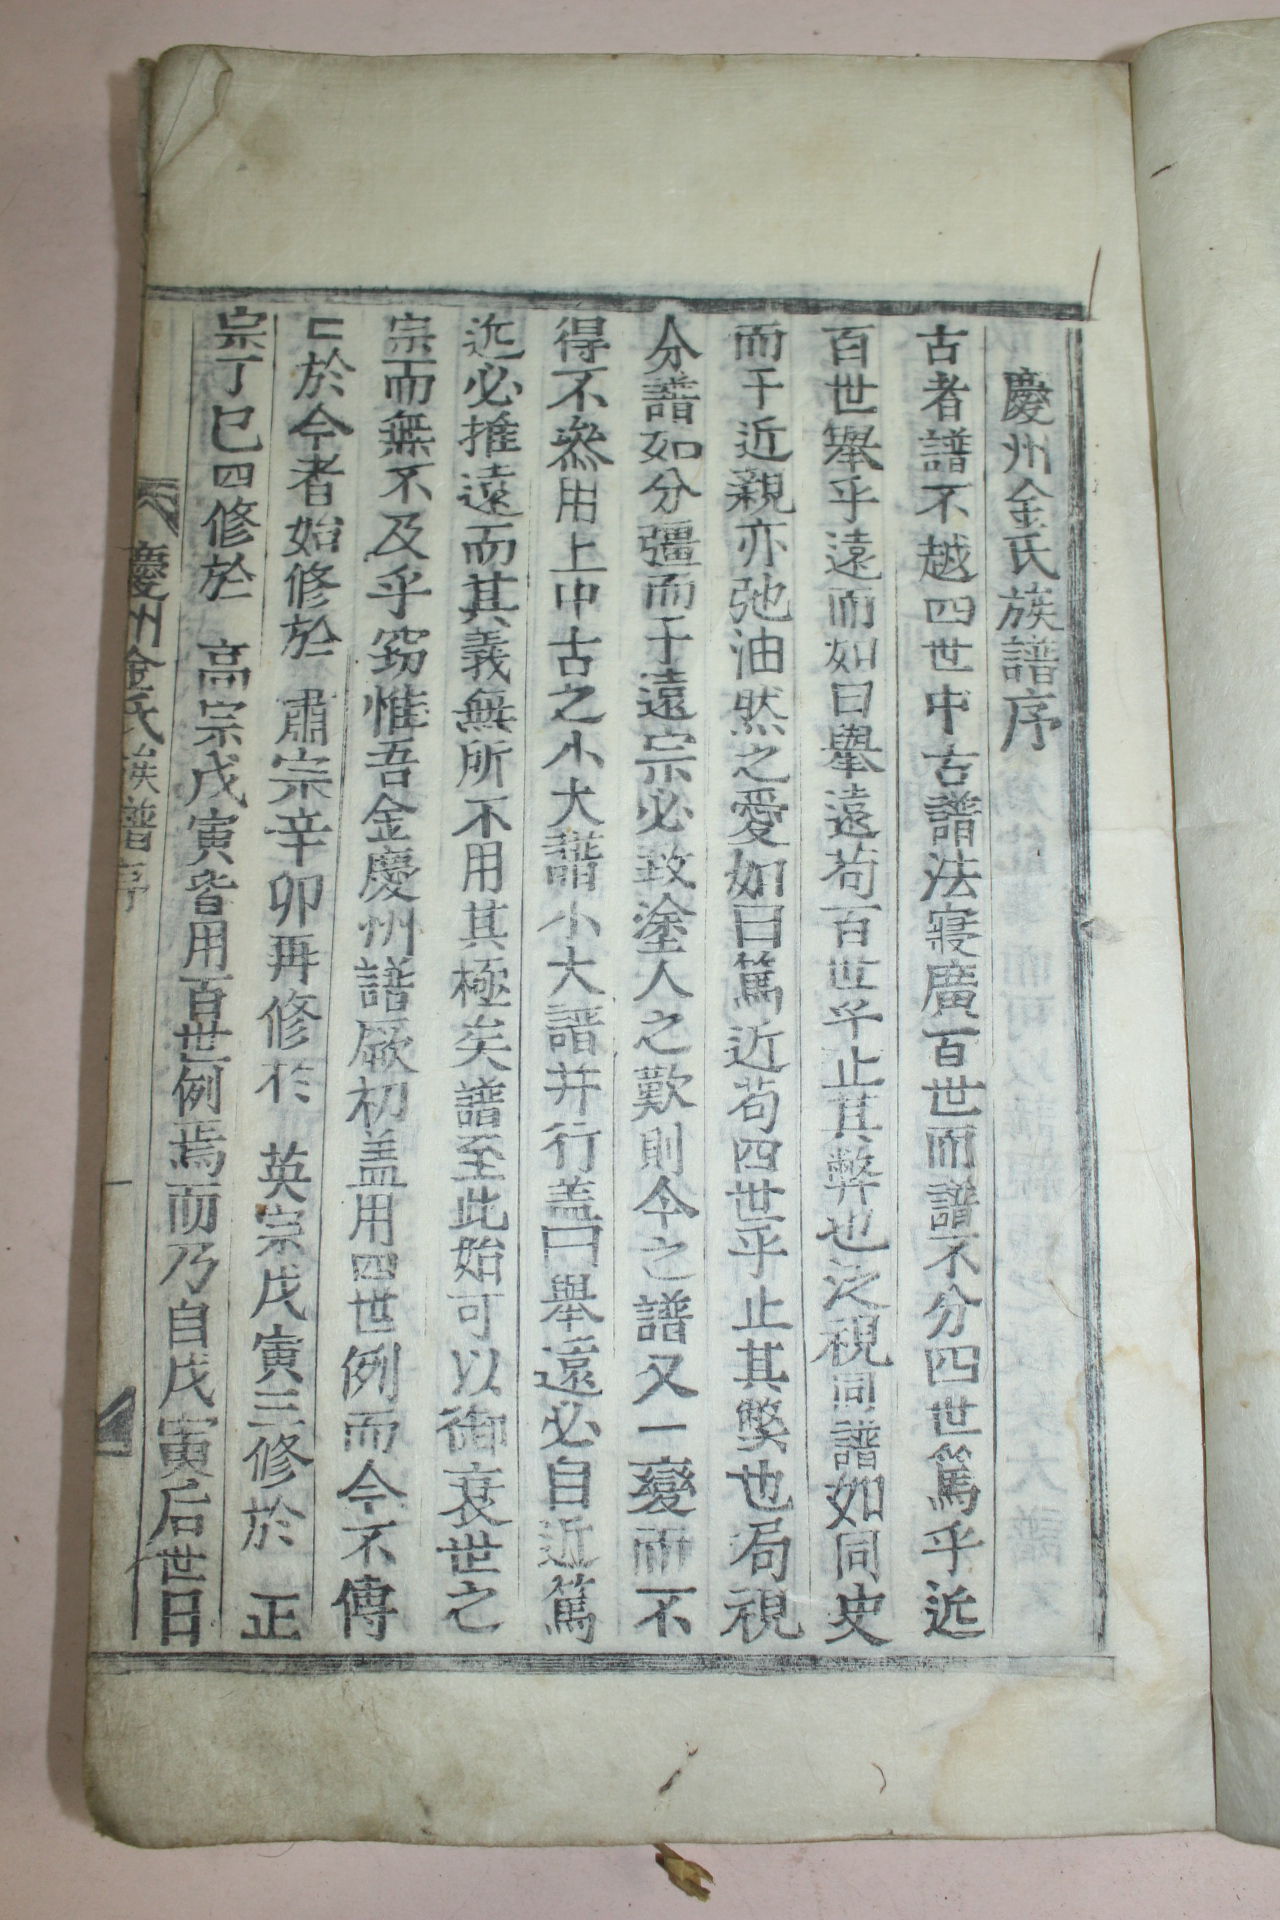 慶州金氏族譜序
古者譜不越四世中古譜法寢廣百世而譜不分四世篤乎近
百世舉乎遠而如曰舉遠苟百世乎止其弊也泛視同譜如同史
而于近親亦弛油然之愛如曰篤近苟四世乎止其弊也局視
分譜如分疆而于遠宗必致塗人之歎則今之譜又一變而不
得不叅用上中古之小大譜小大譜并行盖曰舉遠必自近篤
近必推遠而其義無所不用其極矣譜至此始可以御衰世之
宗而無不及乎窃惟吾金慶州譜厥初盖用四世例而今不傳
於今者始修於 肅宗辛卯再修於 英宗戊寅三修於 正
宗丁巳四修於 高宗戊寅皆用百世例焉而乃自戊寅后世日
慶州金氏族譜序